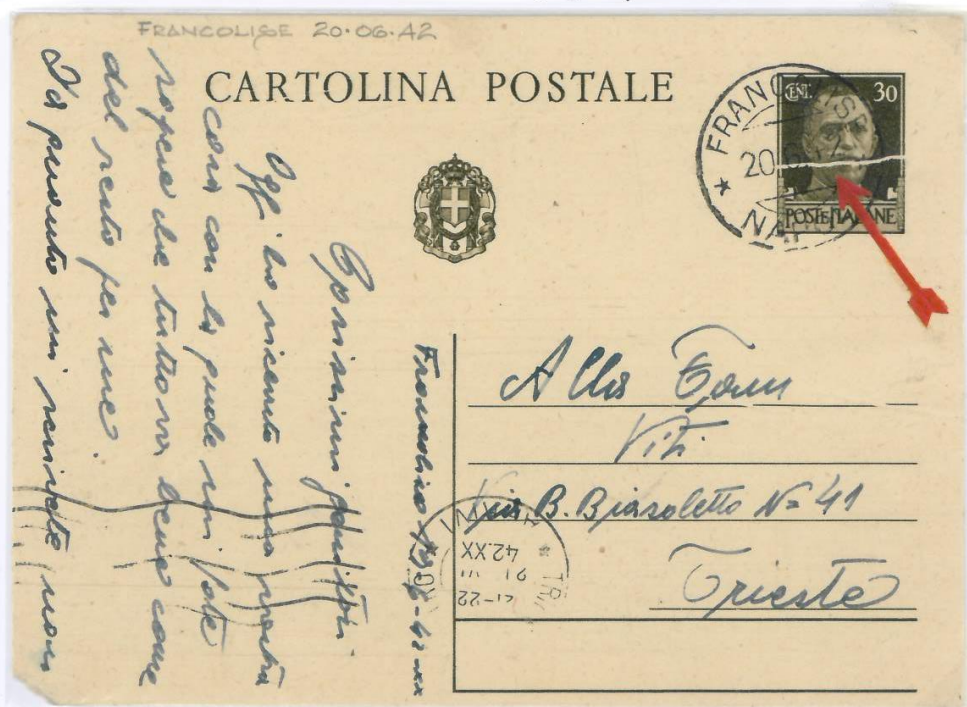 FRANCOLISE 20·06·42
CARTOLINA POSTALE
CENT. 30
POSTE ITALIANE
FRANCOLISE
20
NAP
Alla Fam
Via B. Biasoletto N= 41
Trieste
TRI
21-22
21 VI
42.XX
Francolise 19-6-42-XX
Carissimi genitori
Oggi ho ricevuto una vostra
cara con la quale mi fate
sapere che tutto va bene come
del resto per me.
In quanto mi scrivete non